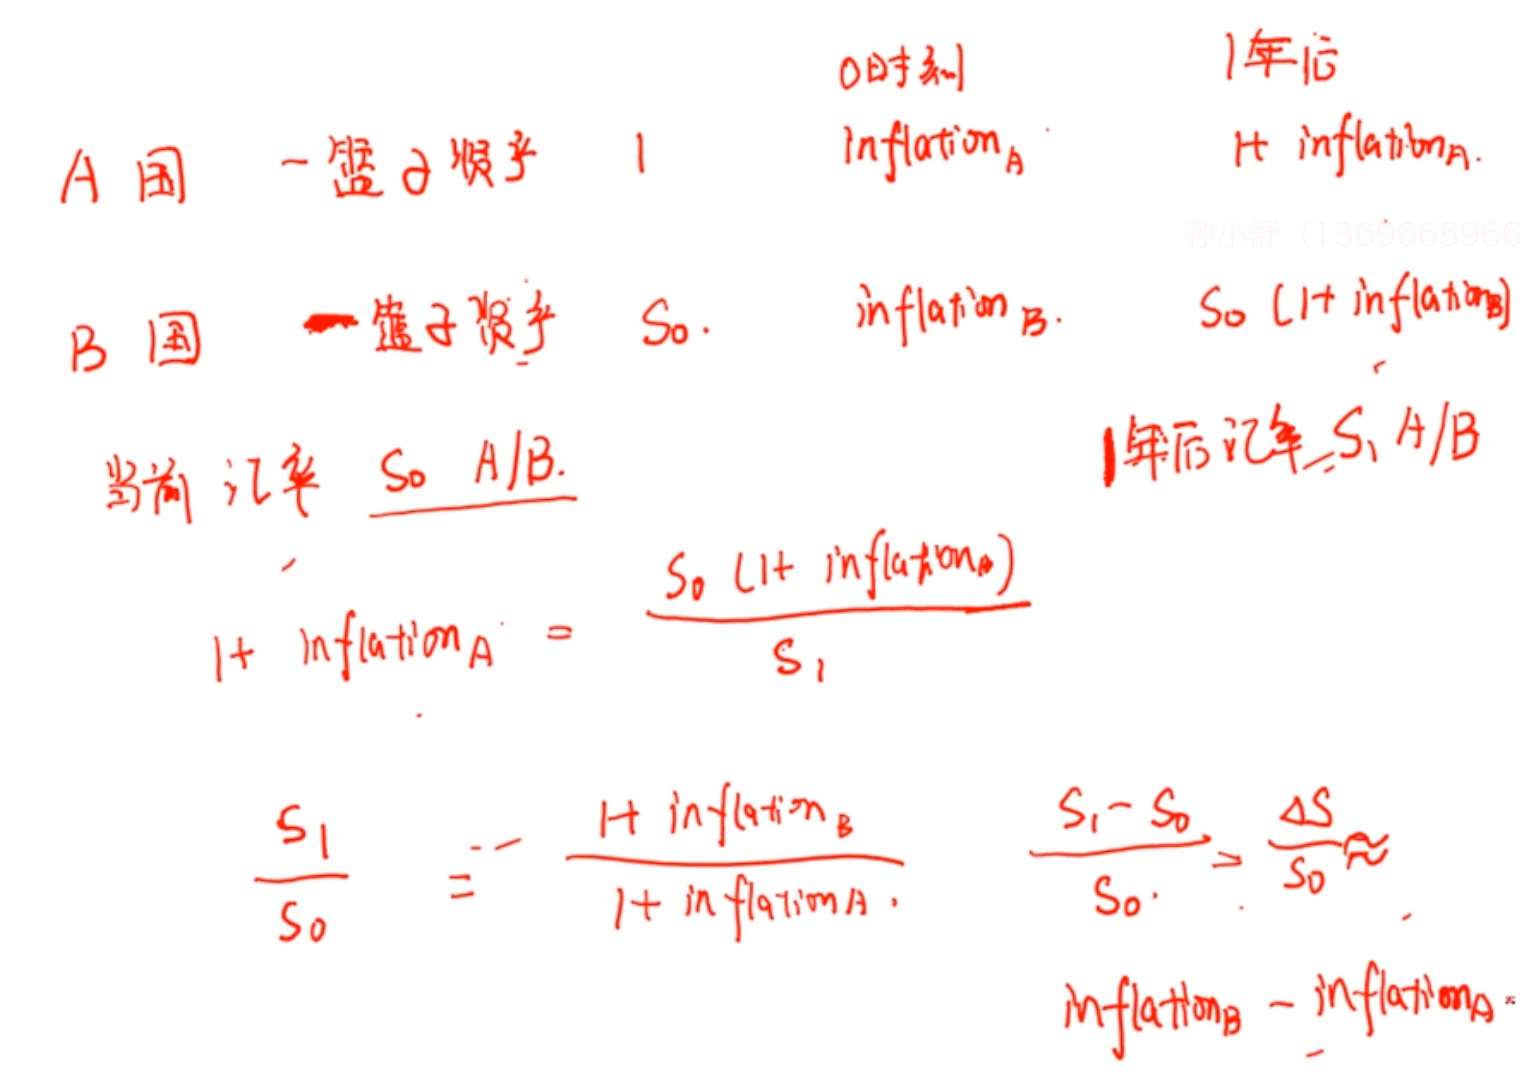 0时刻 1年后
A 国 一篮子货币 1 inflation_A 1+ inflation_A.
孙小舒（1369665966
B 国 一篮子货币 S₀. inflation_B. S₀ (1+ inflation_B)
当前 汇率 S₀ A/B. 1年后汇率 S₁ A/B
1+ inflation_A = S₀ (1+ inflation_B) / S₁
S₁ / S₀ = 1+ inflation_B / 1+ inflation_A. S₁ - S₀ / S₀. = ΔS / S₀ ≈
inflation_B - inflation_A